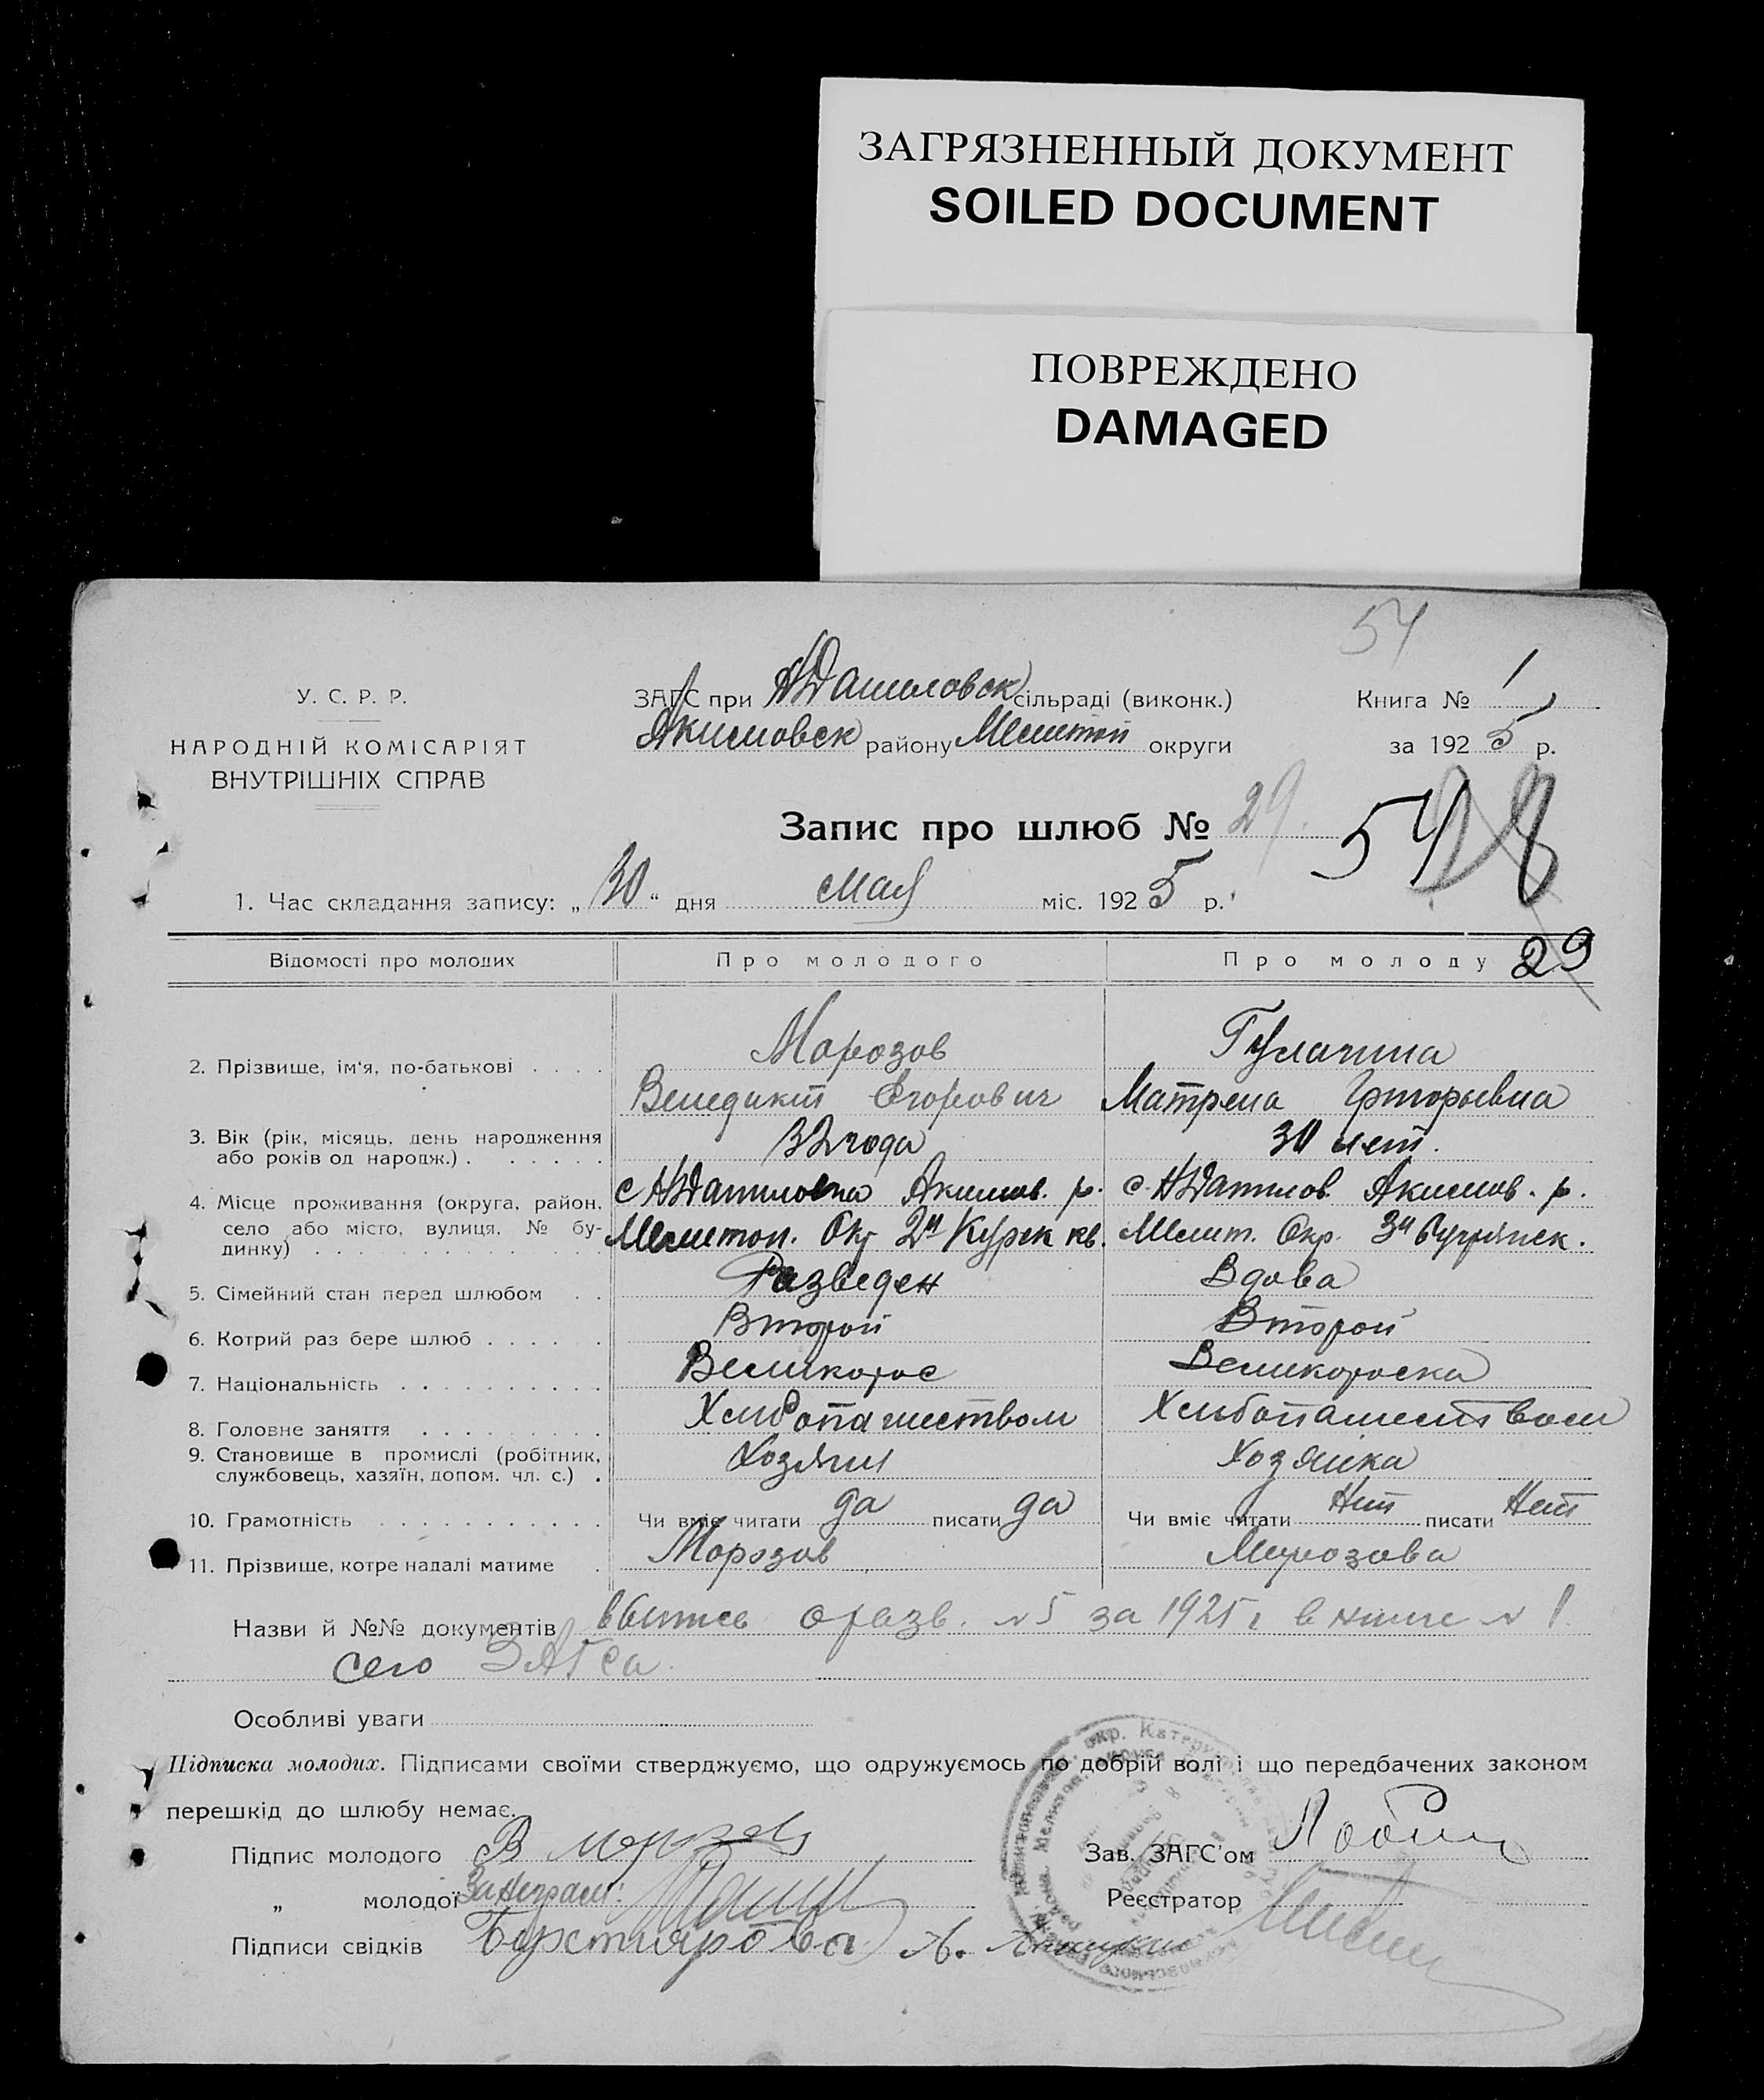 ЗАГРЯЗНЕННЫЙ ДОКУМЕНТ
SOILED DOCUMENT
ПОВРЕЖДЕНО
DAMAGED
54
У. С. Р. Р.
НАРОДНІЙ КОМІСАРІЯТ
ВНУТРІШНІХ СПРАВ
ЗАГС при НДаниловск сільраді (виконк.)
Акимовск району Мелитоп округи
Книга № 1
за 1925 р.
Запис про шлюб № 29. 54 28
1. Час складання запису: „30“ дня мая міс. 1925 р.
29
Відомості про молодих Про молодого Про молоду
2. Прізвище, ім'я, по-батькові Морозов
Венедикт Егорович Матрена Григорьевна
3. Вік (рік, місяць, день народження або років од народж.) 32 года 30 лет.
4. Місце проживання (округа, район, село або місто, вулиця, № будинку) с НДаниловка Акимов. р. с. НДанилов. Акимов. р.
Мелитоп. Окр 2й Курск кв. Мелит. Окр. 3й
5. Сімейний стан перед шлюбом Разведен Вдова
6. Котрий раз бере шлюб Второй Второй
7. Національність Великорос Великороска
8. Головне заняття Хлебопашеством Хлебопашеством
9. Становище в промислі (робітник, службовець, хазяїн, допом. чл. с.) Хозяин Хозяйка
10. Грамотність Чи вміє читати да писати да Чи вміє читати Нет писати Нет
11. Прізвище, котре надалі матиме Морозов Морозова
Назви й №№ документів о разв. №5 за 1925 г в книге № 1
сего ЗАГСа.
Особливі уваги
Підписка молодих. Підписами своїми стверджуємо, що одружуємось по добрій волі і що передбачених законом
перешкід до шлюбу немає.
Підпис молодого В Морозов Зав. ЗАГС'ом
„ молодої За неграм: Реєстратор
Підписи свідків